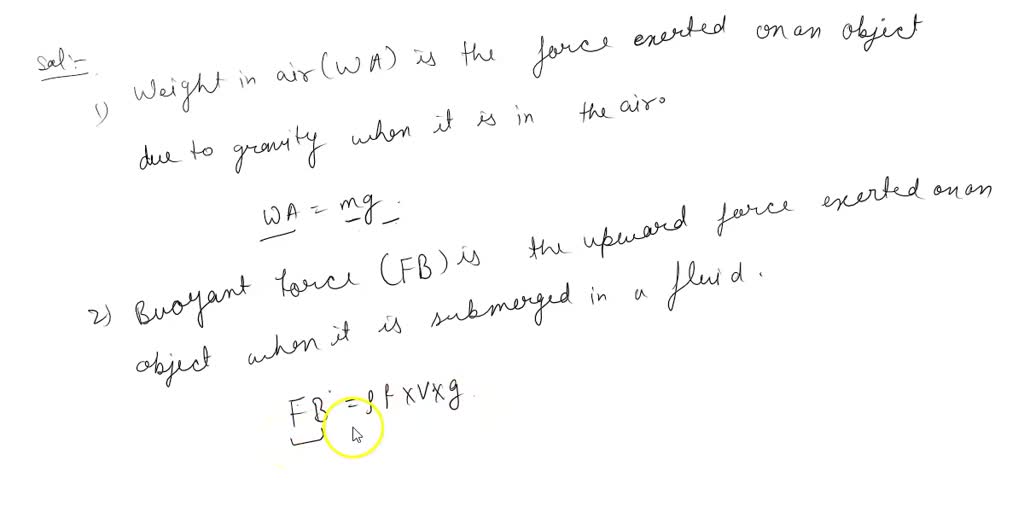 Sol:-
1) Weight in air (WA) is the force exerted on an object
due to gravity when it is in the air.
WA = mg.
2) Buoyant force (FB) is the upward force exerted on an
object when it is submerged in a fluid.
FB = ρf x V x g